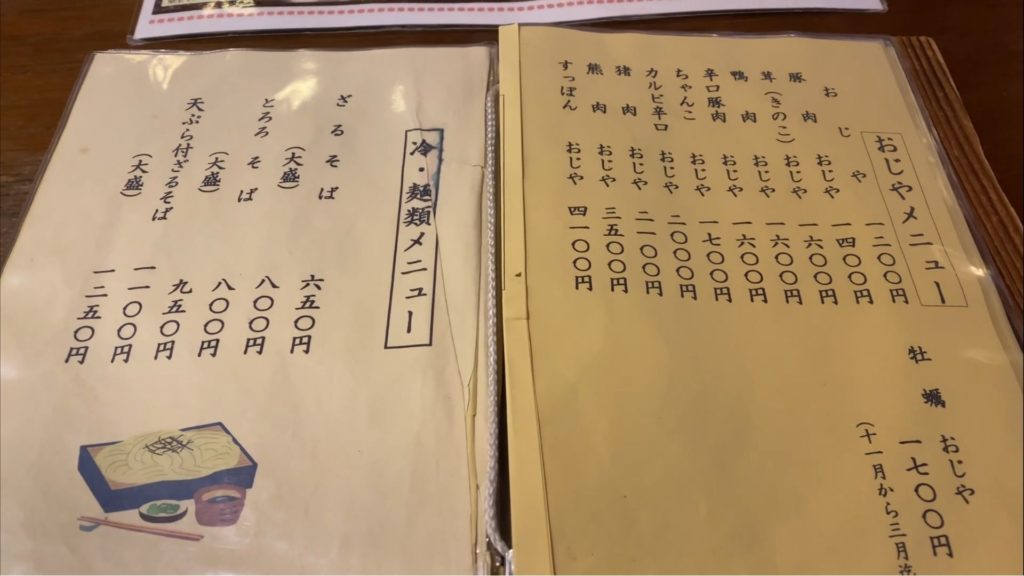 おじやメニュー
おじや 一二〇〇円
豚肉 おじや 一四〇〇円
茸(きのこ) おじや 一六〇〇円
鴨肉 おじや 一六〇〇円
辛口豚肉 おじや 一六〇〇円
ちゃんこ おじや 一七〇〇円
カルビ辛口 おじや 二〇〇〇円
猪肉 おじや 二一〇〇円
熊肉 おじや 三五〇〇円
すっぽん おじや 四一〇〇円
牡蠣 おじや
一七〇〇円
(十一月から三月迄
冷・麺類メニュー
ざるそば 六五〇円
(大盛) 八〇〇円
とろろそば 八〇〇円
(大盛) 九五〇円
天ぷら付ざるそば 一一〇〇円
(大盛) 一二五〇円